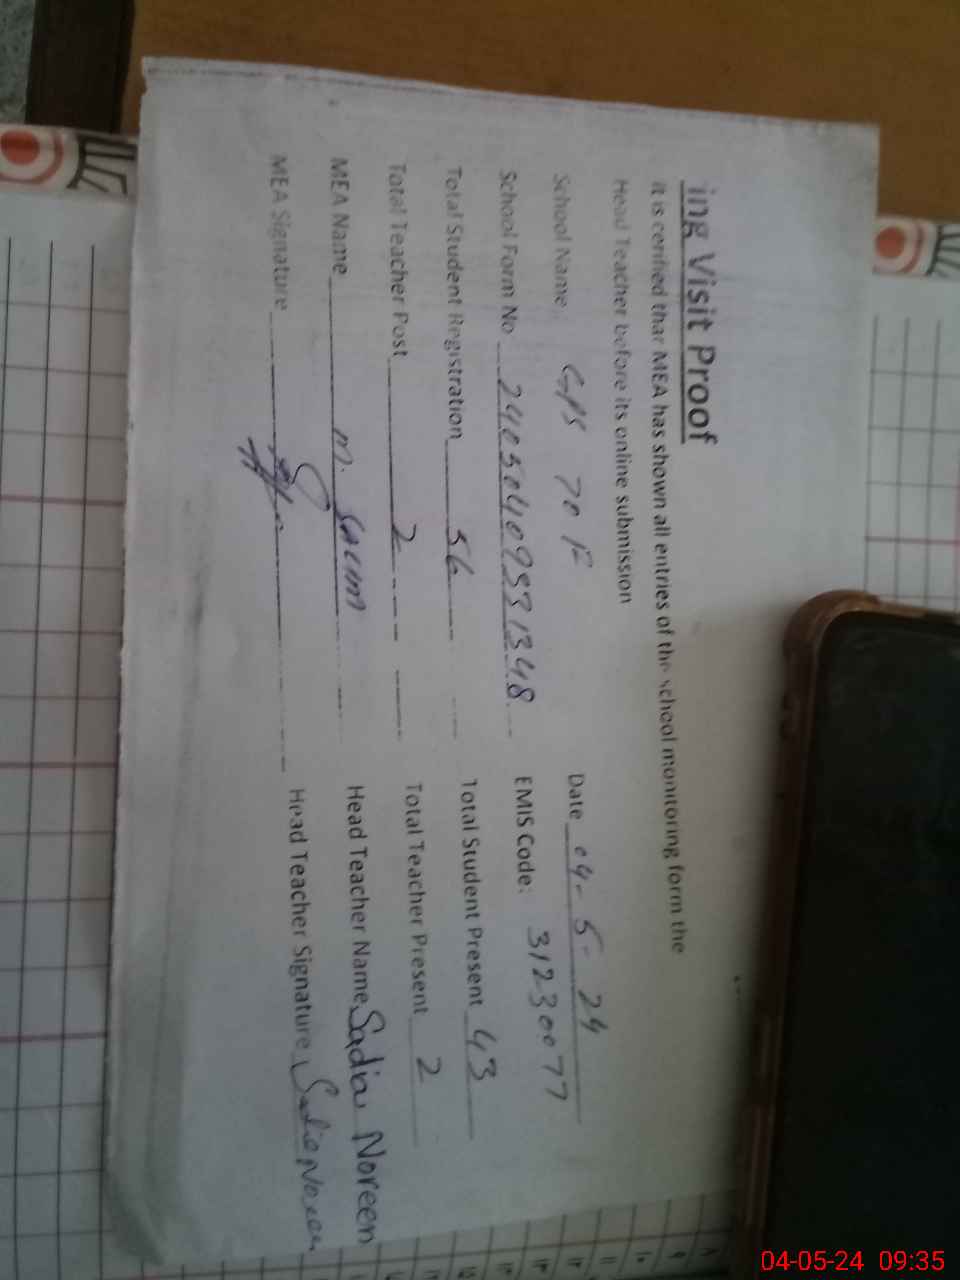 ing Visit Proof
it is cerified thar MEA has shown all entries of the school monitoring form the
Head Teacher before its online submission
School Name: GPS 70 F Date 04-5-24
School Form No 24050409531348 EMIS Code: 31230077
Total Student Registration 56 Total Student Present 43
Total Teacher Post 2 Total Teacher Present 2
MEA Name M. Head Teacher Name Sadia Noreen
MEA Signature Head Teacher Signature Sadia Noreen
04-05-24 09:35